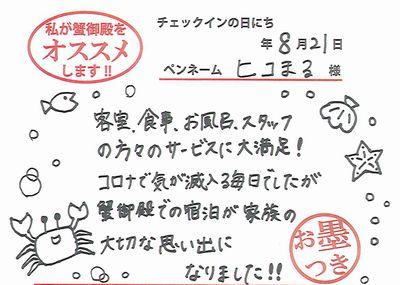 私が蟹御殿を
オススメ
します!!
チェックインの日にち
年8月21日
ペンネーム ヒコまる 様
客室、食事、お風呂、スタッフ
の方々のサービスに大満足！
コロナで気が滅入る毎日でしたが
蟹御殿での宿泊が家族の
大切な思い出に
なりました!!
お墨
つき